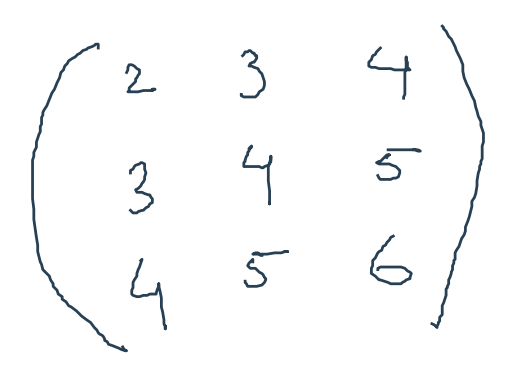 2 3 4
3 4 5
4 5 6